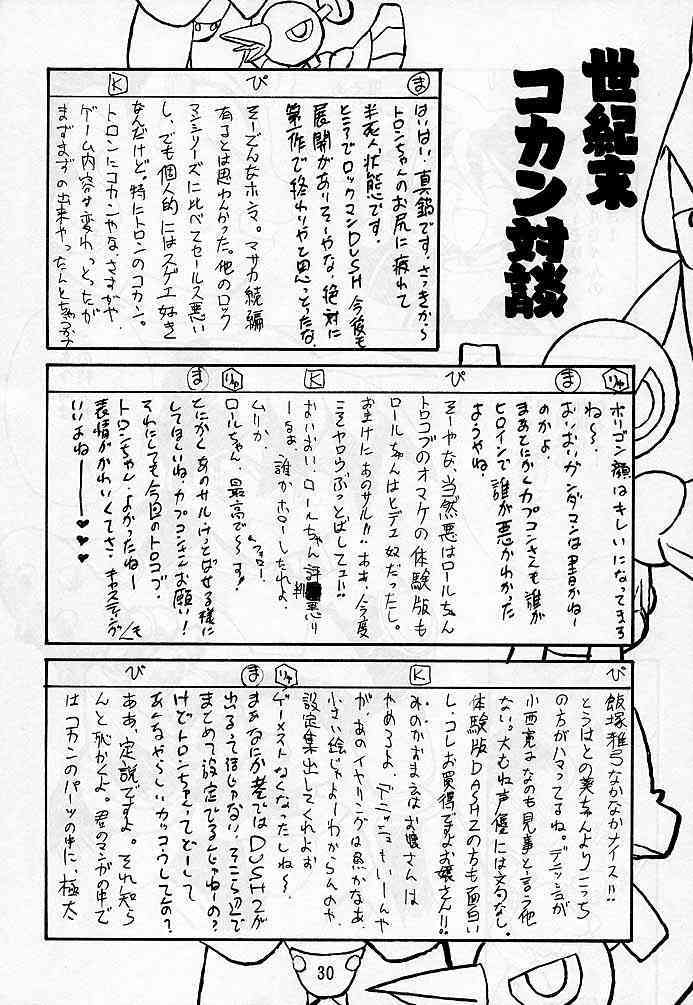 世紀末
コカン対談
ま
ぴ
K
はいはい、真鍋です。さっきから
トロンちゃんのお尻に疲れて
半死人状態です。
ところでロックマンDUSH今後も
展開がありそーやな、絶対に
第一作で終わりやと思っとったな。
そーどんなホンマ。マサカ続編
有るとは思わんかった。他のロック
マンシリーズに比べてセールス悪い
し、でも個人的にはスゲエ好き
なんだけど。特にトロンのコカン。
トロンにコカンやな、さすがや、
ゲーム内容も変わっとったが
まずまずの出来やったんとちゃうか?
りゅ
ま
ぴ
K
りゅ
ま
ポリゴン顔はキレイになってます
ね〜。
おいおいガンダマンは
のかよ。
まあとにかくカプコンさんも誰が
ヒロインで誰が悪かわかった
ようやね。
そーやな、当然悪はロールちゃん
トロコブのオマケの体験版も
ロールちゃんはヒデエ奴だったし。
おまけにあのサル!!ホホ、今度
こそヤロウぶっとばしてェ!!
おいおい、ロールちゃん評悪い
なぁ、誰かホローしたれよ。
ムリか。
フォロー
ロールちゃん、最高で〜す!
とにかくあのサルけっとばせる様に
してほしいね、カプコンさんお願い!!
それにしても今回のトロコブ、
トロンちゃん、よかったねー
表情がかわいくてさ、キャスティングも
いいよねー♥♥♥
ぴ
K
りゅ
ま
び
飯塚雅弓なかなかナイス!!
とうはとの美ちゃんよりこっち
の方がハマってるね。デニッシュが
小西寛はなのも見事と言う他
ない。大もね声優には文句なし。
体験版DASH2の方も面白い
し、コレお買得ですよお嬢さん!!
みのかおまえはお嬢さんは
やめろよ、デニッシュもいーんや
が、あのイヤリングは魚かなあ、
小さい絵じゃよーわからんのや、
設定集出してくれよお
ゲーメストなくなったしね〜。
まぁなにか巷ではDUSH2が
出るって話じゃない、そこら辺で
まとめて設定でるんじゃねーの?
けどトロンちゃんってどーして
あんなやらしいカッコウしてんの?
ああ、定説ですよ。それ知ら
んと恥かくよ。君のマンガの中で
はコカンのパーツの中に、極太
30